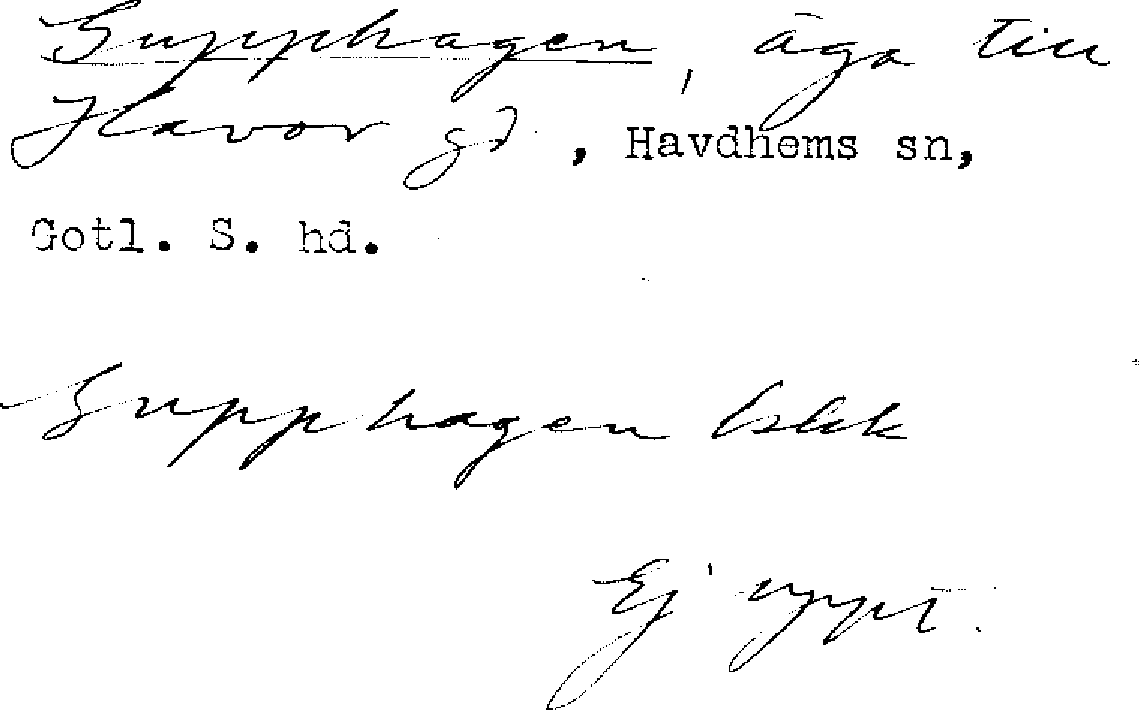 Supphagen, äga till
Havor gd, Havdhems sn,
Gotl. S. hd.
Supphagen
Ej uppt.